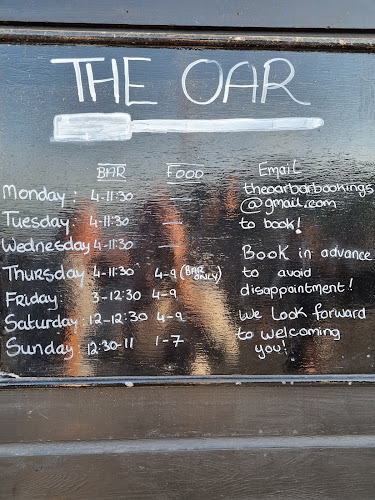 THE OAR
BAR FOOD
Monday: 4-11:30 —
Tuesday: 4-11:30 —
Wednesday 4-11:30 —
Thursday 4-11:30 4-9 (BAR ONLY)
Friday: 3-12:30 4-9
Saturday: 12-12:30 4-9
Sunday: 12:30-11 1-7
Email
theoarbarbookings
@gmail.com
to book!
Book in advance
to avoid
disappointment!
We look forward
to welcoming
you!